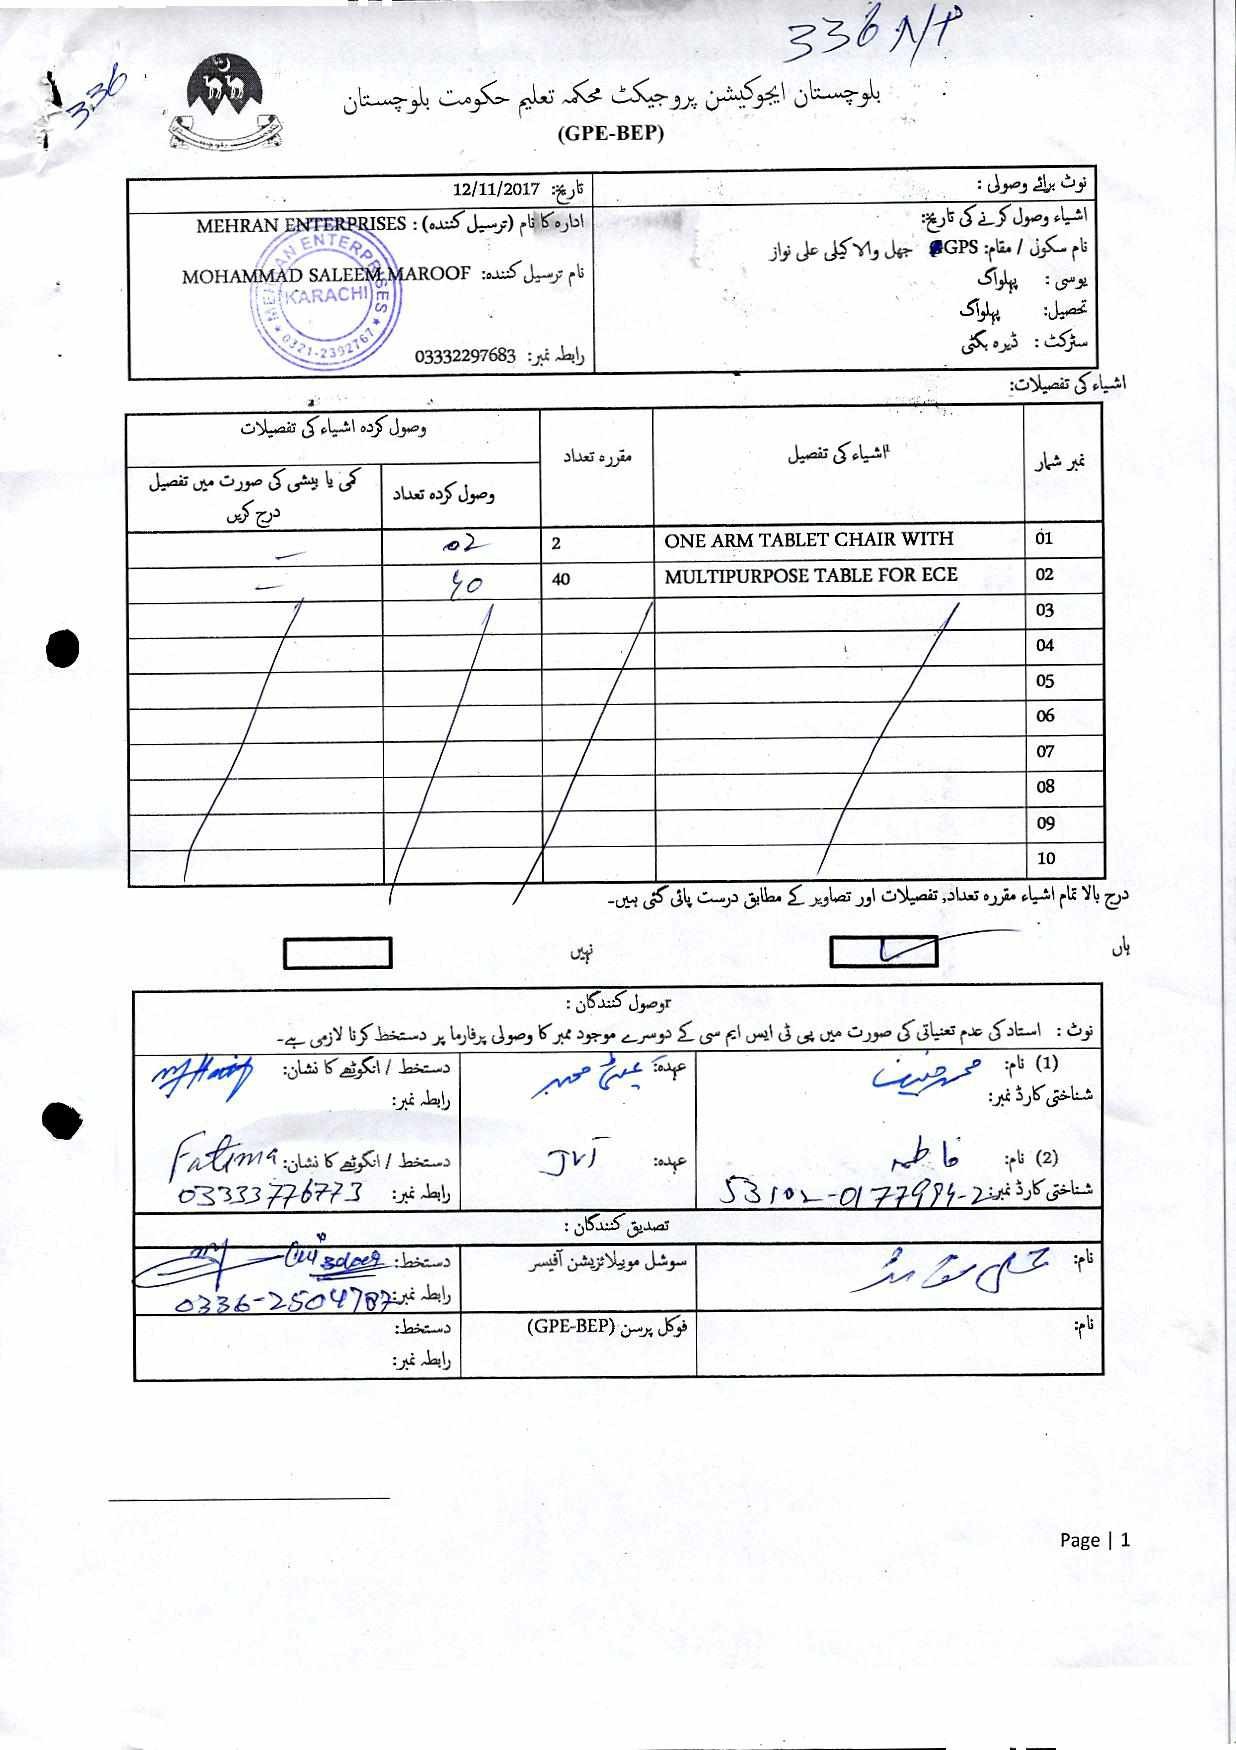 336 N/P
336
بلوچستان ایجوکیشن پروجیکٹ محکمہ تعلیم حکومت بلوچستان
(GPE-BEP)
نوٹ برائے وصولی :
تاریخ: 12/11/2017
اشیاء وصول کرنے کی تاریخ:
نام سکول / مقام: GPS جھل والا کیلی علی نواز
یوسی : پہلواگ
تحصیل: پہلواگ
سٹرکٹ : ڈیرہ بگٹی
ادارہ کا نام (ترسیل کنندہ) : MEHRAN ENTERPRISES
نام ترسیل کنندہ: MOHAMMAD SALEEM MAROOF
رابطہ نمبر: 03332297683
MEHRAN ENTERPRISES
KARACHI
0321-2392767
اشیاء کی تفصیلات:
نمبر شمار
اشیاء کی تفصیل
مقررہ تعداد
وصول کردہ اشیاء کی تفصیلات
وصول کردہ تعداد
کمی یا بیشی کی صورت میں تفصیل
درج کریں
01 ONE ARM TABLET CHAIR WITH 2 02 –
02 MULTIPURPOSE TABLE FOR ECE 40 40 –
03
04
05
06
07
08
09
10
درج بالا تمام اشیاء مقررہ تعداد, تفصیلات اور تصاویر کے مطابق درست پائی گئی ہیں۔
ہاں
نہیں
وصول کنندگان :
نوٹ : استاد کی عدم تعنیاتی کی صورت میں پی ٹی ایس ایم سی کے دوسرے موجود ممبر کا وصولی پرفارما پر دستخط کرنا لازمی ہے۔
(1) نام: محمد حنیف
عہدہ:
دستخط / انگوٹھے کا نشان:
شناختی کارڈ نمبر:
رابطہ نمبر:
(2) نام: فاطمہ
عہدہ: JVT
دستخط / انگوٹھے کا نشان: Fatima
شناختی کارڈ نمبر: 53102-0177984-2
رابطہ نمبر: 03333776773
تصدیق کنندگان :
نام:
سوشل موبیلائزیشن آفیسر
دستخط:
رابطہ نمبر: 0336-2504787
نام:
فوکل پرسن (GPE-BEP)
دستخط:
رابطہ نمبر:
Page | 1